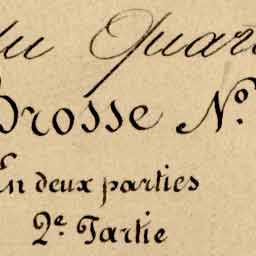 du Quar
Brosse No.
En deux parties
2e. Partie